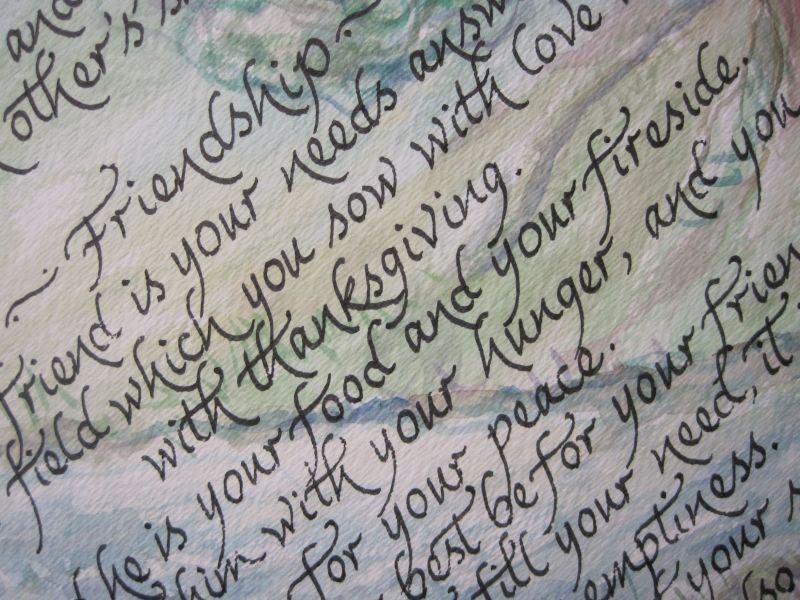 and
other's s
~ Friendship ~
friend is your needs answ
field which you sow with love
with thanksgiving.
he is your food and your fireside.
him with your hunger, and you
for your peace.
best be for your frien
fill your need, it
emptiness.
your
(so